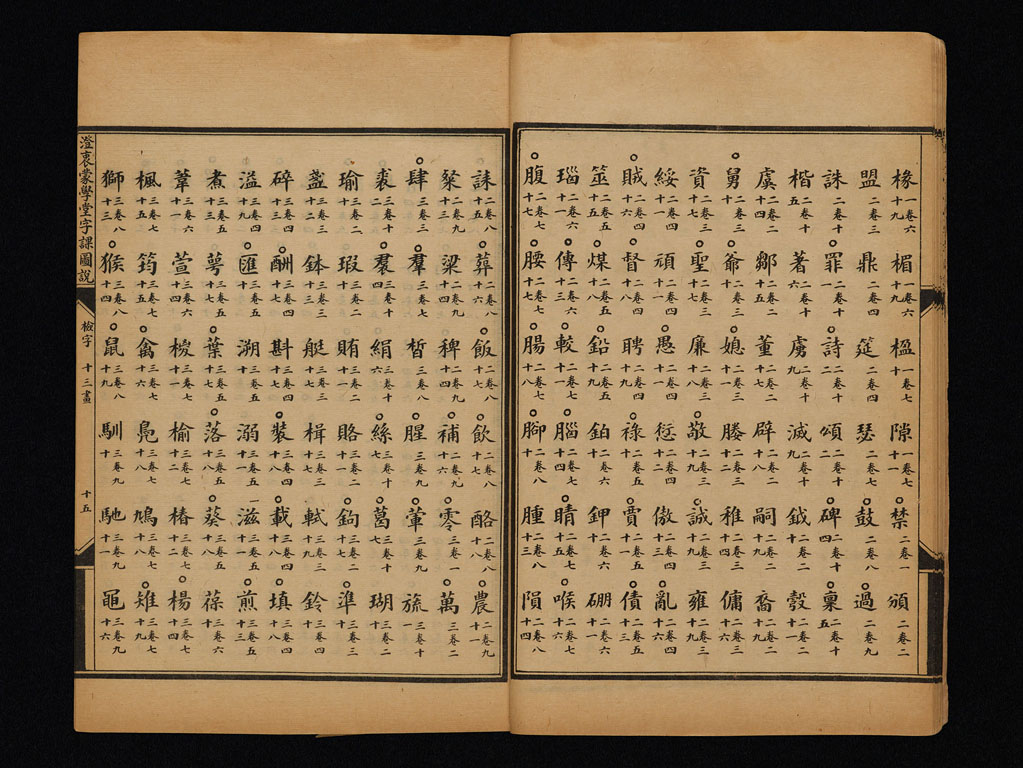 椽一卷六十九 楣一卷六十九 楹一卷七十九 隙一卷七十一 禁二卷一 頒二卷二
盟二卷三 鼎二卷四 筵二卷四 瑟二卷七 鼓二卷八 過二卷九
誅二卷十 罪二卷十一 詩二卷十二 頌二卷十二 碑二卷十四 稟二卷十五
楷二卷二五 著二卷二六 虜二卷二七 滅二卷二九 鉞二卷二十 彀二卷二十一
虞二卷二十四 鄒二卷二十五 董二卷二十七 辟二卷二十八 嗣二卷二十九 裔二卷二十九
舅二卷三十 爺二卷三十 媳二卷三十一 媵二卷三十二 稚二卷三十四 傭二卷三十六
資二卷三十七 聖二卷三十七 廉二卷三十八 敬二卷三十九 誠二卷三十九 雍二卷三十九
綏二卷四十一 頑二卷四十一 愚二卷四十一 愆二卷四十二 傲二卷四十三 亂二卷四十六
賊二卷四十六 督二卷四十八 聘二卷四十九 祿二卷四十九 賈二卷五十一 債二卷五十三
筮二卷五十五 煤二卷五十八 鉛二卷五十九 鉑二卷五十九 鉀二卷六十 硼二卷六十一
瑙二卷六十一 傳二卷六十三 較二卷七十一 腦二卷七十四 睛二卷七十五 喉二卷七十六
腹二卷七十七 腰二卷七十七 腸二卷七十八 腳二卷七十八 腫二卷八十三 隕二卷八十四
誄二卷八十五 葬二卷八十六 飯二卷八十七 飲二卷八十七 酪二卷八十八 農二卷九十一
粲二卷九十三 粱二卷九十四 稗二卷九十四 補二卷九十六 零三卷一 萬三卷二
肆三卷三 羣三卷七 皙三卷八 腥三卷九 葷三卷九 旒三卷十一
裘三卷十二 裠三卷十四 絹三卷十六 絲三卷十七 葛三卷十七 瑚三卷二十
瑜三卷二十 瑕三卷二十 賄三卷二十一 賂三卷二十一 鉤三卷二十七 準三卷三十
盞三卷三十二 鉢三卷三十三 艇三卷三十七 楫三卷三十七 軾三卷三十九 鈴三卷四十
碎三卷四十三 酬三卷四十七 斟三卷四十七 裝三卷四十八 載三卷四十八 填三卷四十八
溢三卷四十九 匯三卷五十 溯三卷五十 溺三卷五十一 滋三卷五十一 煎三卷五十三
煮三卷五十三 萼三卷五十七 葉三卷五十七 落三卷五十八 葵三卷五十八 葆三卷六十
葦三卷六十一 萱三卷六十四 椶三卷七十一 榆三卷七十二 椿三卷七十二 楊三卷七十四
楓三卷七十五 筠三卷七十五 禽三卷七十六 鳧三卷七十八 鳩三卷七十八 雉三卷七十九
獅三卷八十三 猴三卷八十四 鼠三卷八十九 馴三卷九十 馳三卷九十一 黽三卷九十六
澄衷蒙學堂字課圖說 檢字 十三畫 十五